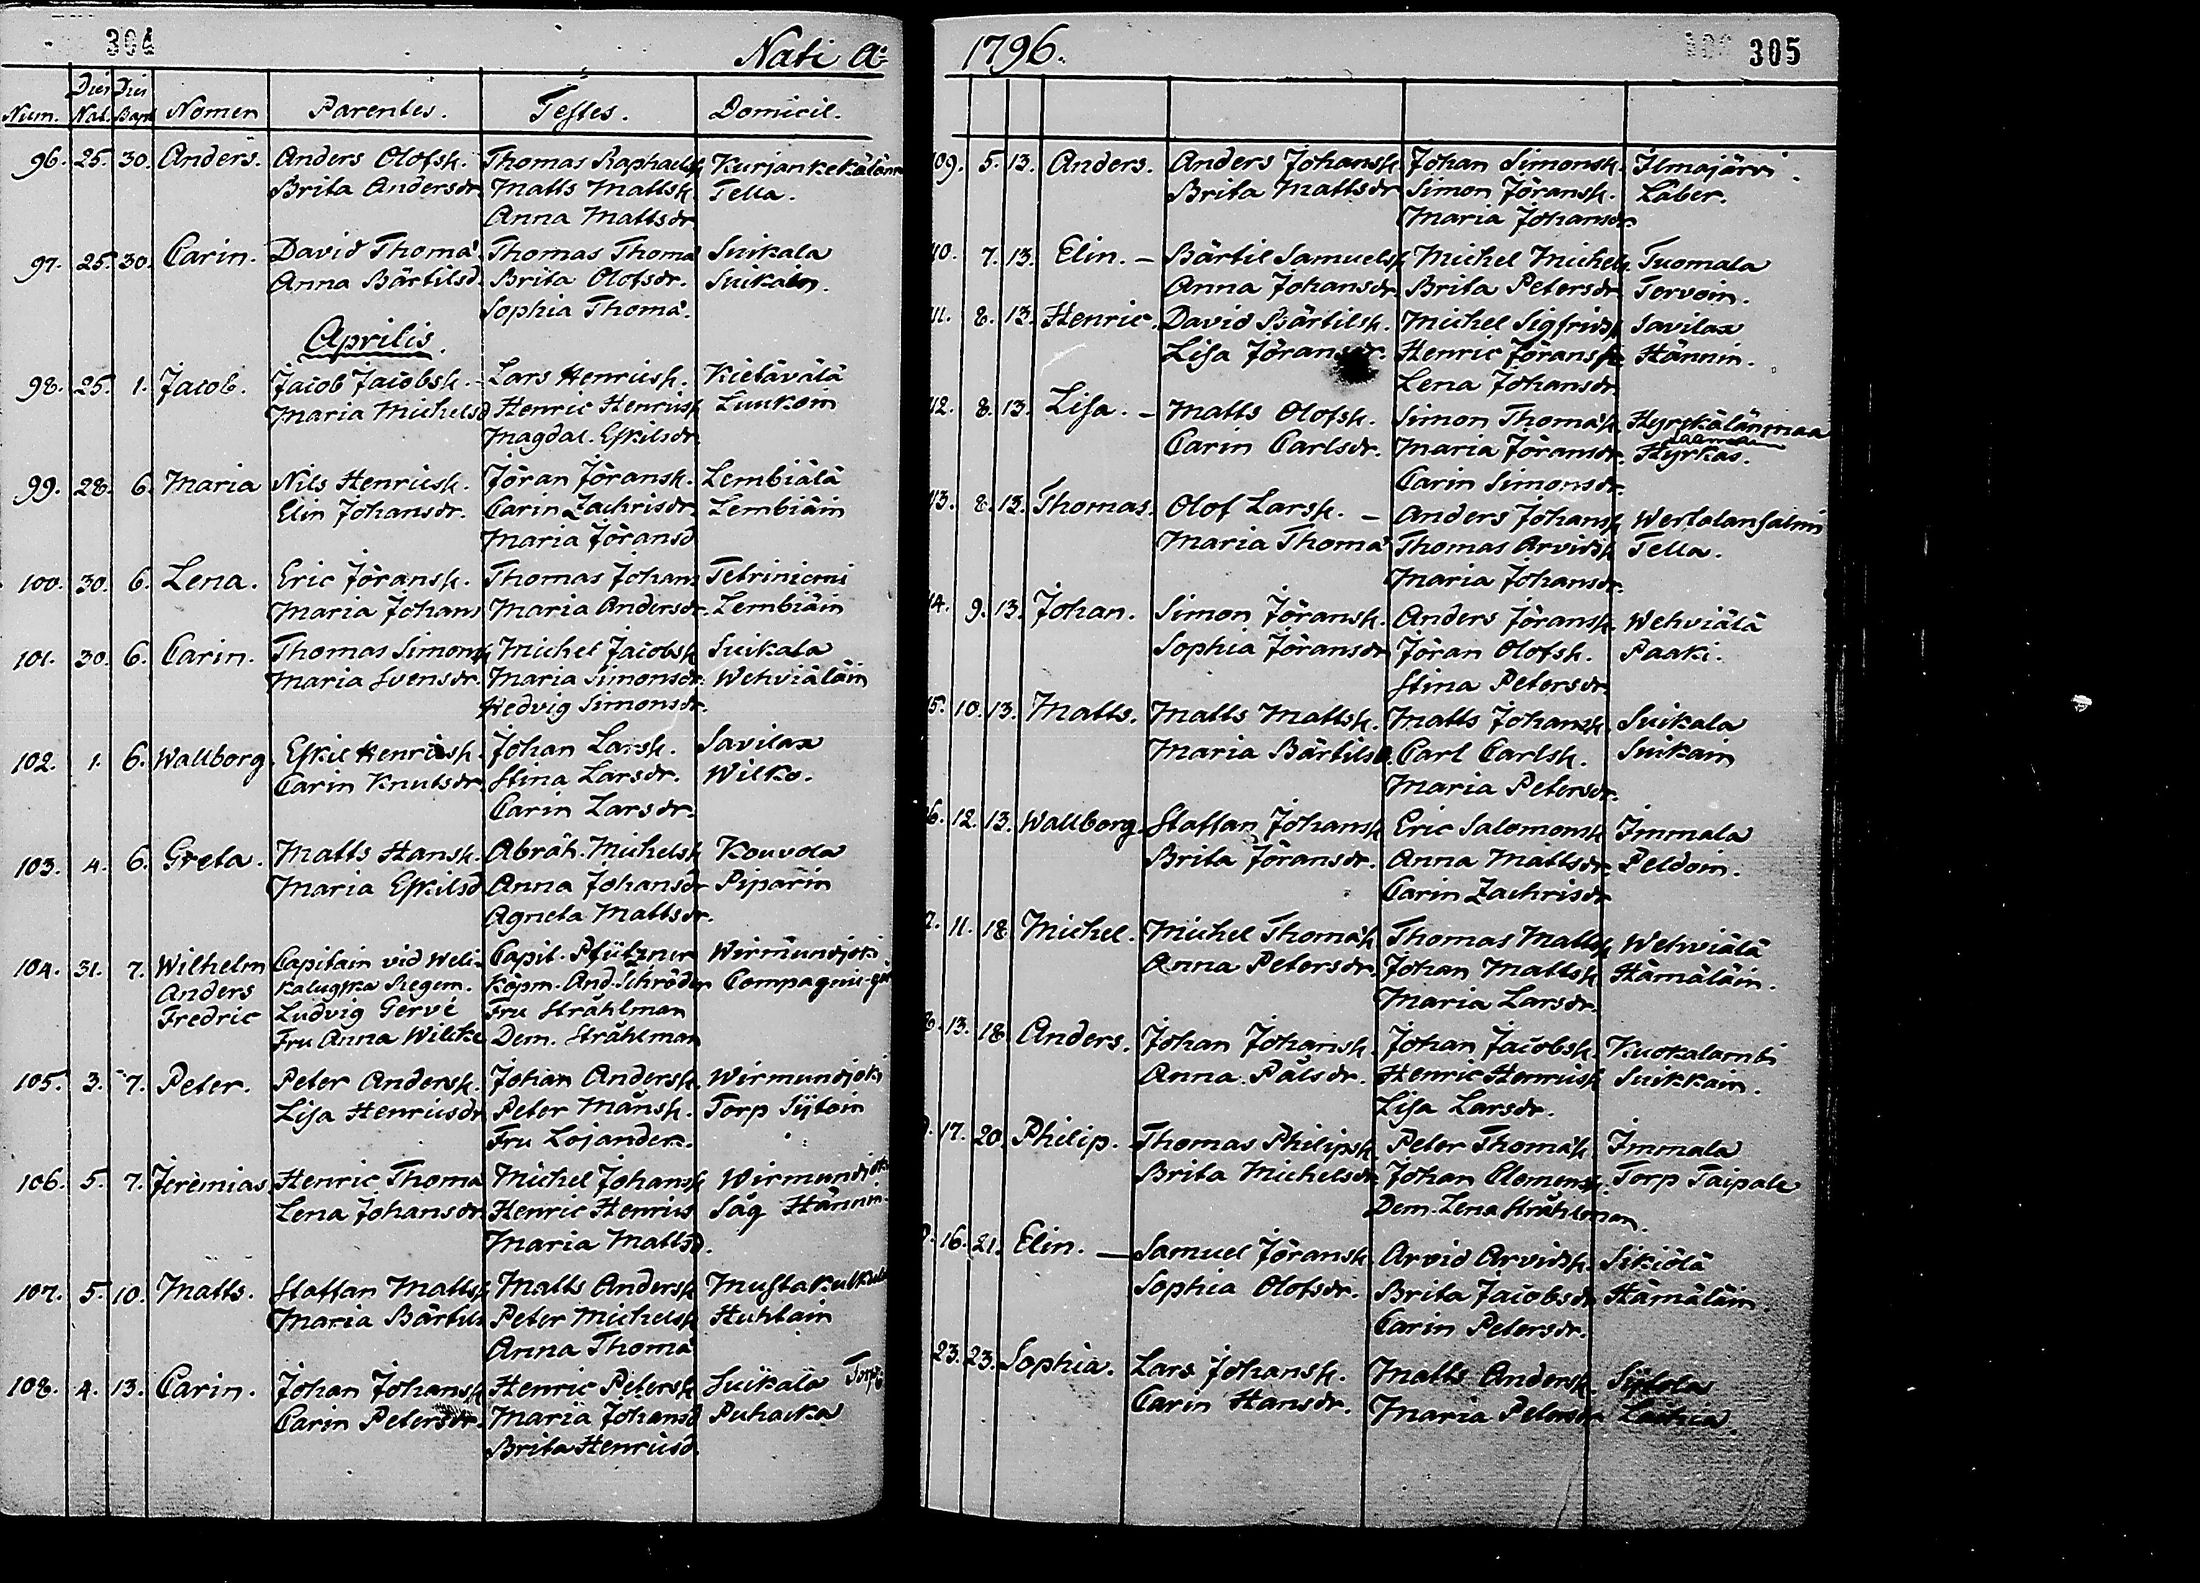 304
Nati Aº
Num. Dies Nat. Dies Bapt Nomen Parentes. Testes. Domicil.
96. 25. 30. Anders. Anders Olofsk. Thomas Raphaelsk Kurjankekälänm
Brita Andersdr. Matts Mattsk. Tella.
Anna Mattsdr
97. 25. 30. Carin. David Thoma Thomas Thoma Suikala
Anna Bärtilsd. Brita Olofsdr. Suikain.
Sophia Thoma.
Aprilis.
98. 25. 1. Jacob. Jacob Jacobsk. Lars Henricsk. Kietävälä
Maria Michelsd Henric Henricsk Luukoin
Magdal. Eskilsdr
99. 28. 6. Maria Nils Henricsk. Jöran Jöransk. Lembiälä
Elin Johansdr. Carin Zachrisdr. Lembiäin
Maria Jöransd
100. 30. 6. Lena. Eric Jöransk. Thomas Johans Tetriniemi
Maria Johans Maria Andersdr. Lembiäin
101. 30. 6. Carin. Thomas Simonsk Michel Jacobsk Suikala
Maria Svensdr. Maria Simonsdr. Wehviäläin
Hedvig Simonsdr.
102. 1. 6. Wallborg. Eskil Henricsk. Johan Larsk. Savilax
Carin Knutsdr. Stina Larsdr. Wilko.
Carin Larsdr.
103. 4. 6. Greta. Matts Hansk. Abrah. Michelsk Kouvola
Maria Eskilsd Anna Johansdr Piparin
Agneta Mattsdr.
104. 31. 7. Wilhelm Capitain vid Weli- Capit. Pfützner Wirmundjoki
Anders Kalugska Regem. Köpm. And. Schröder Compagnie-gå
Fredric Ludvig Gervé Fru Strählman
Fru Anna Wilcke Dem. Strählman
105. 3. 7. Peter. Peter Andersk. Johan Andersk. Wirmundjoki
Lisa Henricsdr Peter Månsk. Torp Sijtoin
Fru Lojander.
106. 5. 7. Jeremias Henric Thoma Michel Johansk Wirmundjoki
Lena Johansdr. Henric Henrics Såg Hännin.
Maria Mattsd.
107. 5. 10. Matts. Staffan Mattsk Matts Andersk Mustakulkula
Maria Bärtils Peter Michelsk Huhtain
Anna Thoma
108. 4. 13. Carin. Johan Johansk Henric Petersk Suikala Torp
Carin Petersdr. Maria Johansd Puhacka
Brita Henricsd.
1796.
305
109. 5. 13. Anders. Anders Johansk Johan Simonsk. Ilmajärvi.
Brita Mattsdr Simon Jöransk. Läber.
Maria Johansdr.
10. 7. 13. Elin. – Bärtil Samuelsk Michel Michels. Tuomala
Anna Johansdr. Brita Petersdr Tervoin.
11. 8. 13. Henric. David Bärtilsk. Michel Sigfridsk Savilax
Lisa Jöransdr. Henric Jöransk Hännin.
Lena Johansdr.
12. 8. 13. Lisa. – Matts Olofsk. Simon Thomask Hyrckälänmaa
Carin Carlsdr. Maria Jöransdr. Hyrkäs.
Carin Simonsdr.
13. 8. 13. Thomas. Olof Larsk. – Anders Johansk Wertalansalmi
Maria Thoma Thomas Arvidsk Tella.
Maria Johansdr.
14. 9. 13. Johan. Simon Jöransk. Anders Jöransk. Wehviälä
Sophia Jöransdr Jöran Olofsk. Paaki.
Stina Petersdr
15. 10. 13. Matts. Matts Mattsk. Matts Johansk Suikala
Maria Bärtilsd. Carl Carlsk. Suikain
Maria Petersdr.
6. 12. 13. Wallborg. Staffan Johansk Eric Salomonsk Immala
Brita Jöransdr. Anna Mattsdr. Peldoin.
Carin Zachrisdr
11. 18. Michel. Michel Thomask Thomas Mattsk Wehviälä
Anna Petersdr. Johan Mattsk Hämäläin.
Maria Larsdr.
8. 13. 18. Anders. Johan Johansk. Johan Jacobsk. Kuokalambi
Anna Pålsdr. Henric Henricsk Suikkain.
Lisa Larsdr.
17. 20. Philip. Thomas Philipsk Peter Thomask Immala
Brita Michelsdr Johan Clemensk. Torp Taipale
Dem. Lena Strählman.
16. 21. Elin. — Samuel Jöransk Arvid Arvidsk. Sikiölä
Sophia Olofsdr. Brita Jacobsdr Hämäläin.
Carin Petersdr.
23. 23. Sophia. Lars Johansk. Matts Andersk. Sijtola
Carin Hansdr. Maria Petersdr